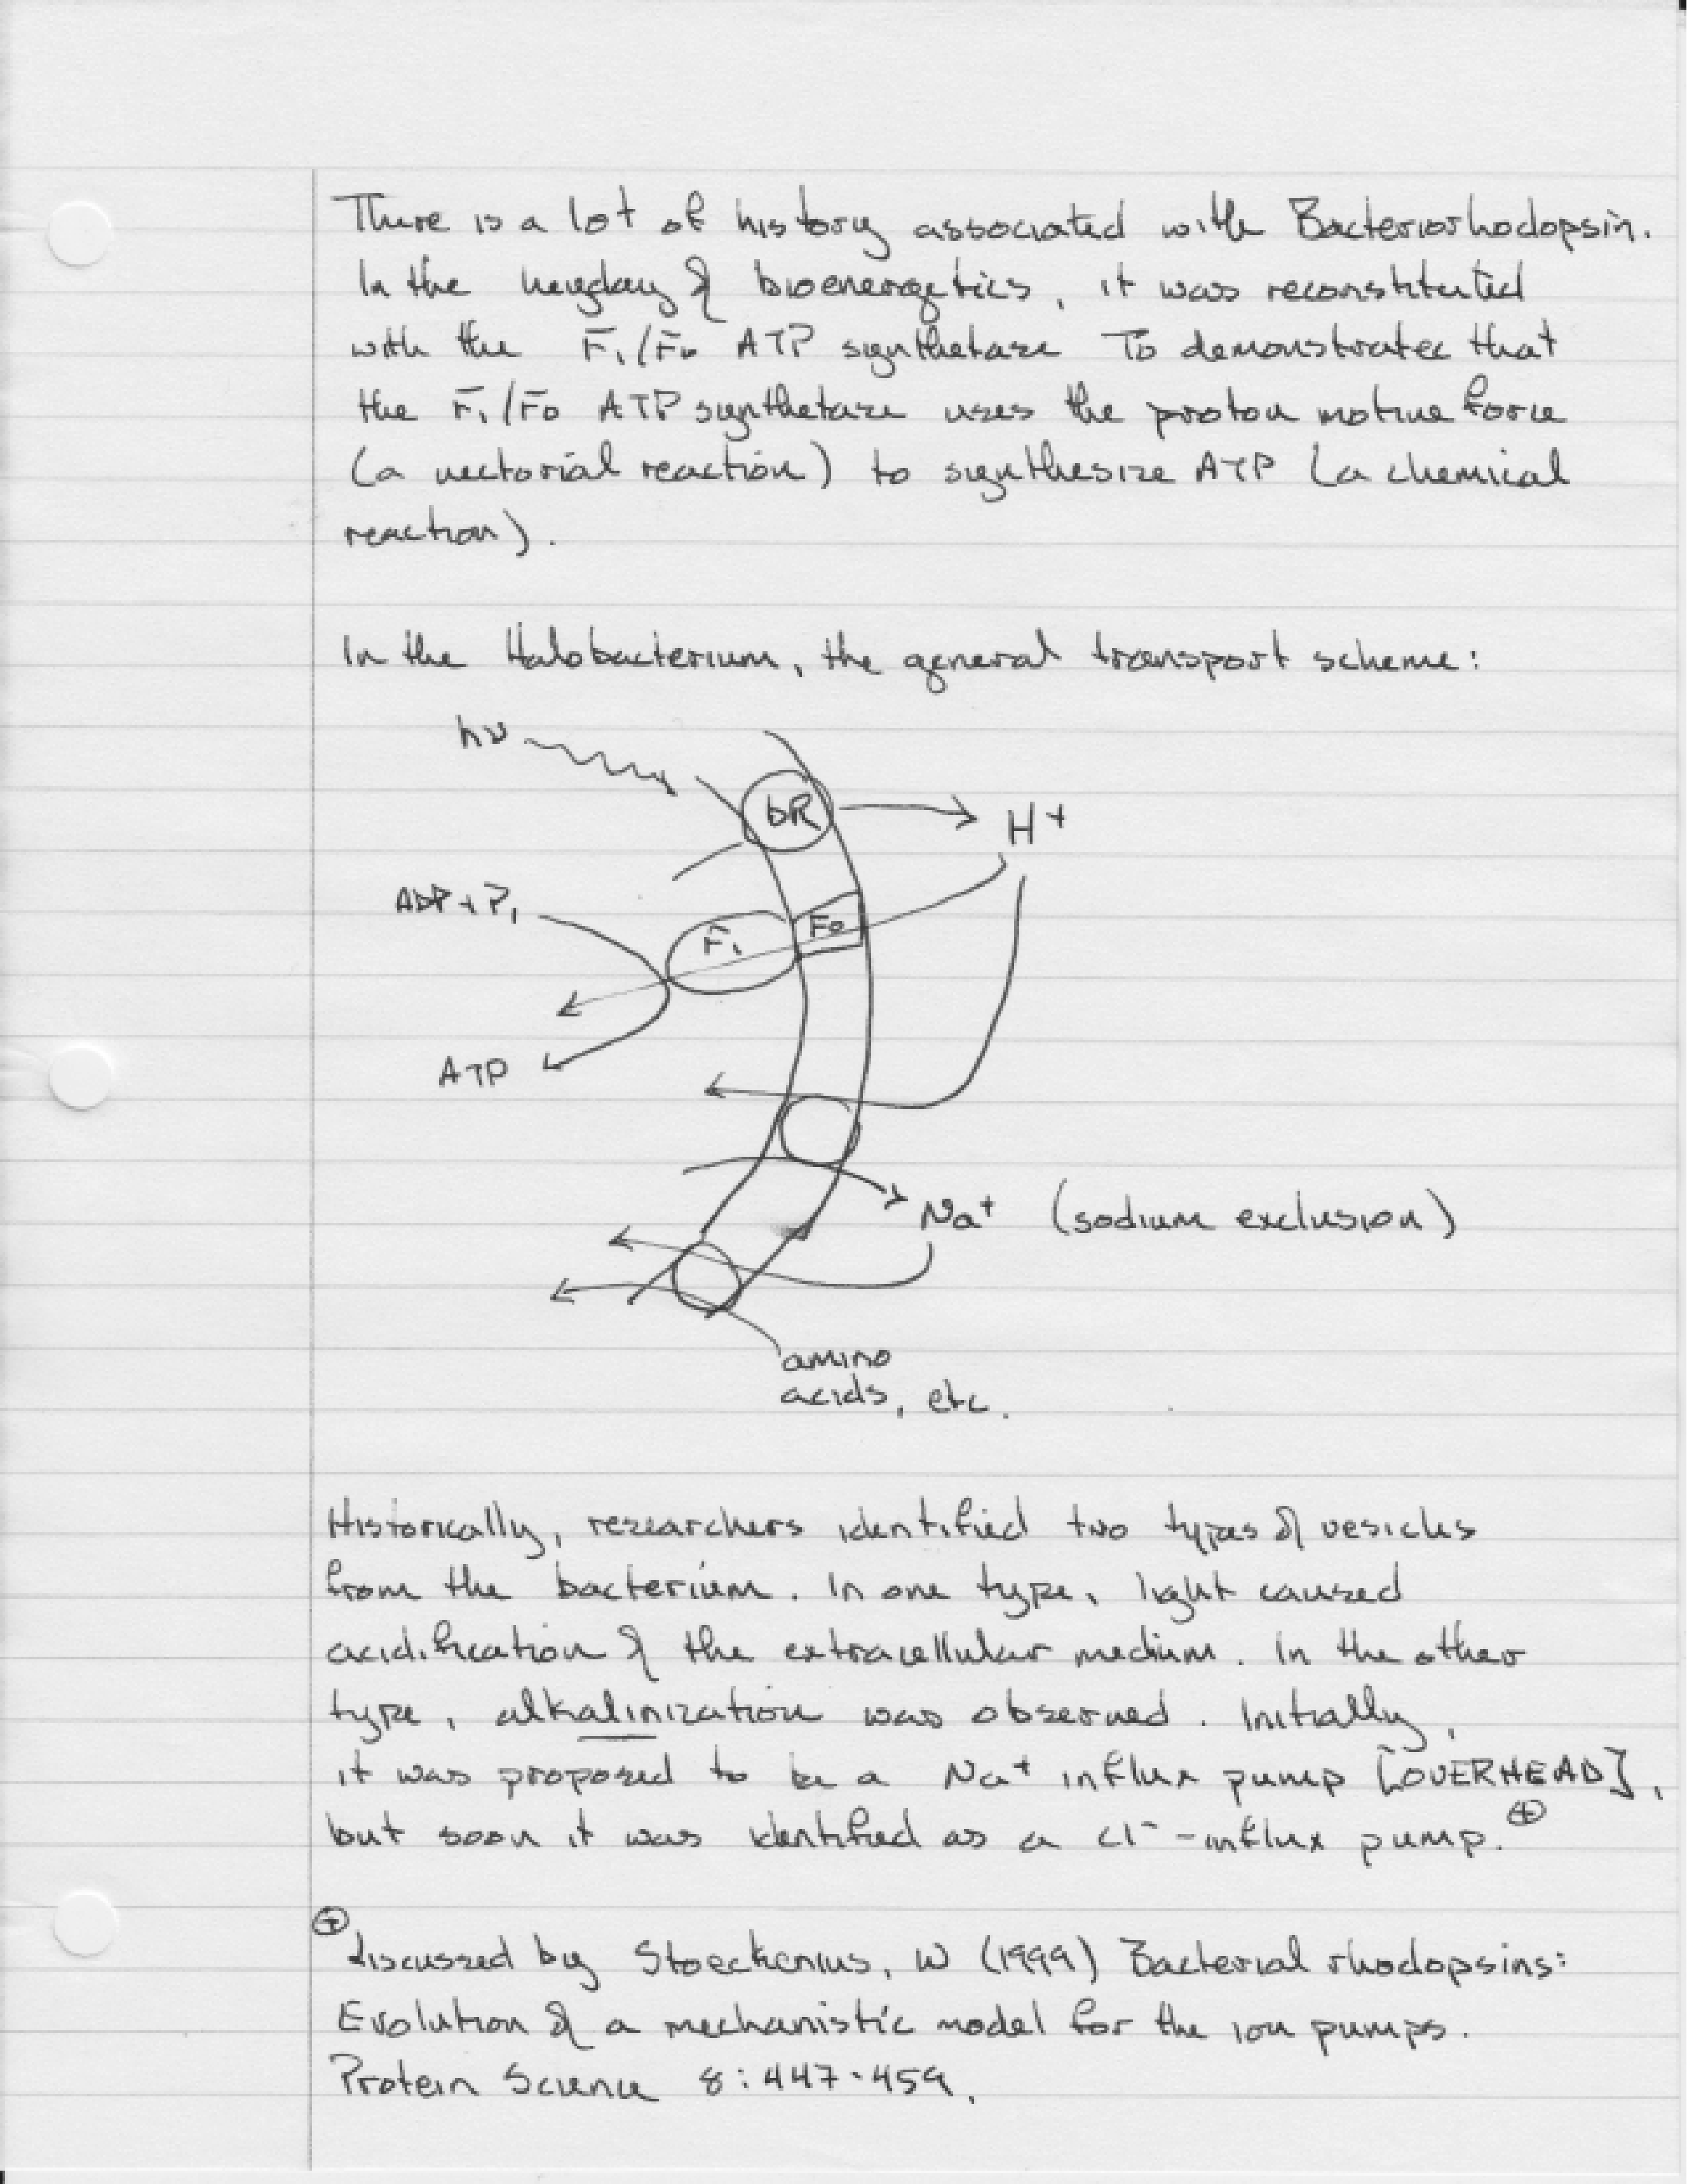 There is a lot of history associated with Bacteriorhodopsin.
In the heyday of bioenergetics, it was reconstituted
with the F₁/F₀ ATP synthetase To demonstrated that
the F₁/F₀ ATP synthetase uses the proton motive force
(a vectorial reaction) to synthesize ATP (a chemical
reaction).
In the Halobacterium, the general transport scheme:
hν
bR
H⁺
ADP + Pᵢ
F₁
F₀
ATP
Na⁺ (sodium exclusion)
amino
acids, etc.
Historically, researchers identified two types of vesicles
from the bacterium. In one type, light caused
acidification of the extracellular medium. In the other
type, alkalinization was observed. Initially,
it was proposed to be a Na⁺ influx pump [OVERHEAD],
but soon it was identified as a Cl⁻-influx pump.⊕
⊕discussed by Stoeckenius, W (1999) Bacterial rhodopsins:
Evolution of a mechanistic model for the ion pumps.
Protein Science 8:447-459.